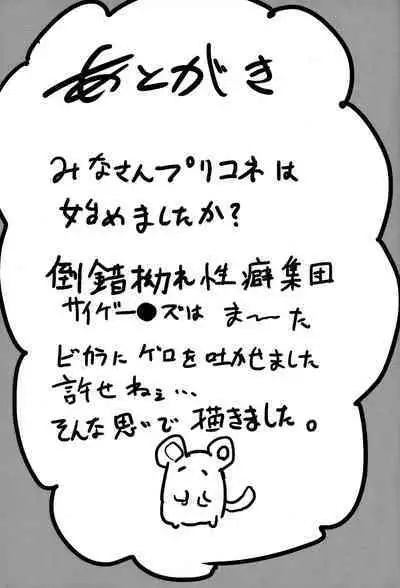 あとがき
みなさんプリコネは
始めましたか?
倒錯拗れ性癖集団
サイゲー●ズは まーーた
ビカラにゲロを吐かせました
許せねぇ…
そんな思いで描きました。